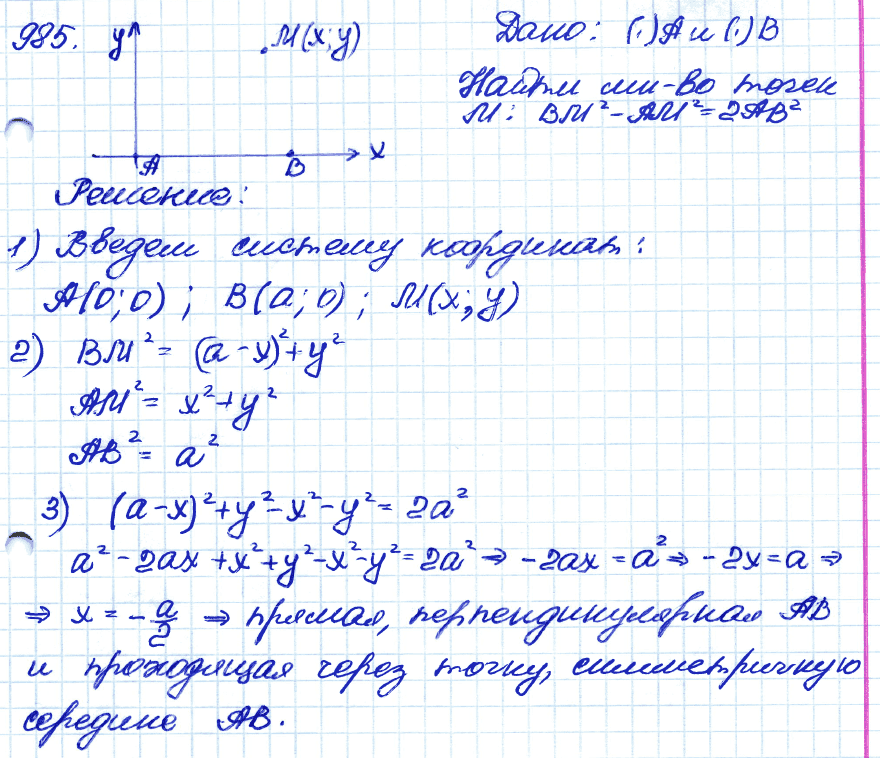 985.
y
M(x; y)
A
B
x
Дано: (.)A и (.)B
Найти мн-во точек
M: BM² - AM² = 2AB²
Решение:
1) Введем систему координат:
A(0; 0) ; B(a; 0) ; M(x; y)
2) BM² = (a - x)² + y²
AM² = x² + y²
AB² = a²
3) (a - x)² + y² - x² - y² = 2a²
a² - 2ax + x² + y² - x² - y² = 2a² ⇒ -2ax = a² ⇒ -2x = a ⇒
⇒ x = -a/2 ⇒ прямая, перпендикулярная AB
и проходящая через точку, симметричную
середине AB.